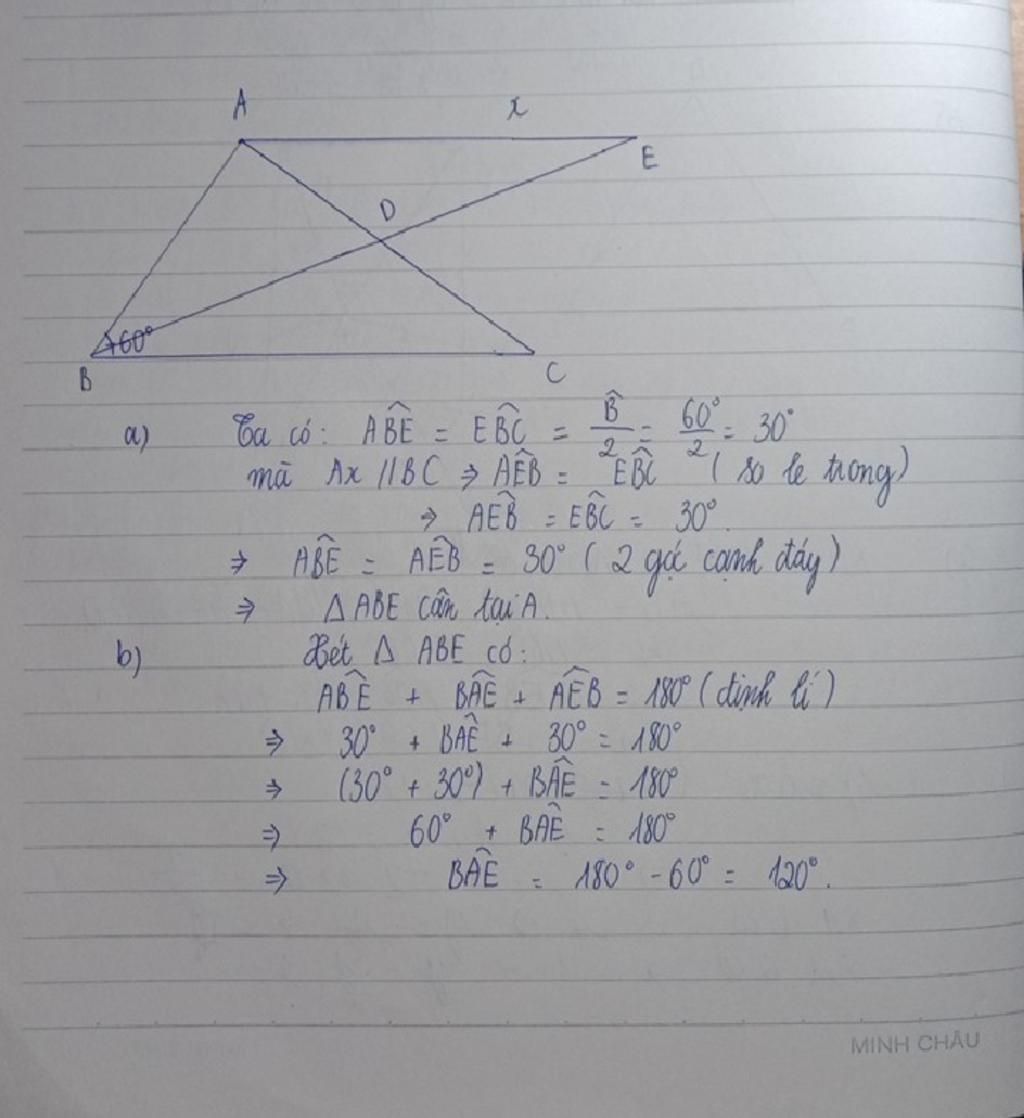 A x
E
D
60°
B C
a) Ta có: ABÊ = EBĈ = B̂/2 = 60°/2 = 30°
mà Ax // BC ⇒ AÊB = EB̂C ( so le trong)
⇒ AÊB = EB̂C = 30°.
⇒ AB̂E = AÊB = 30° ( 2 gó cạnh đáy)
⇒ Δ ABE cân tại A.
b) Xét Δ ABE có:
AB̂E + BÂE + AÊB = 180° (định lí)
⇒ 30° + BÂE + 30° = 180°
⇒ (30° + 30°) + BÂE = 180°
⇒ 60° + BÂE = 180°
⇒ BÂE = 180° - 60° = 120°.
MINH CHÂU